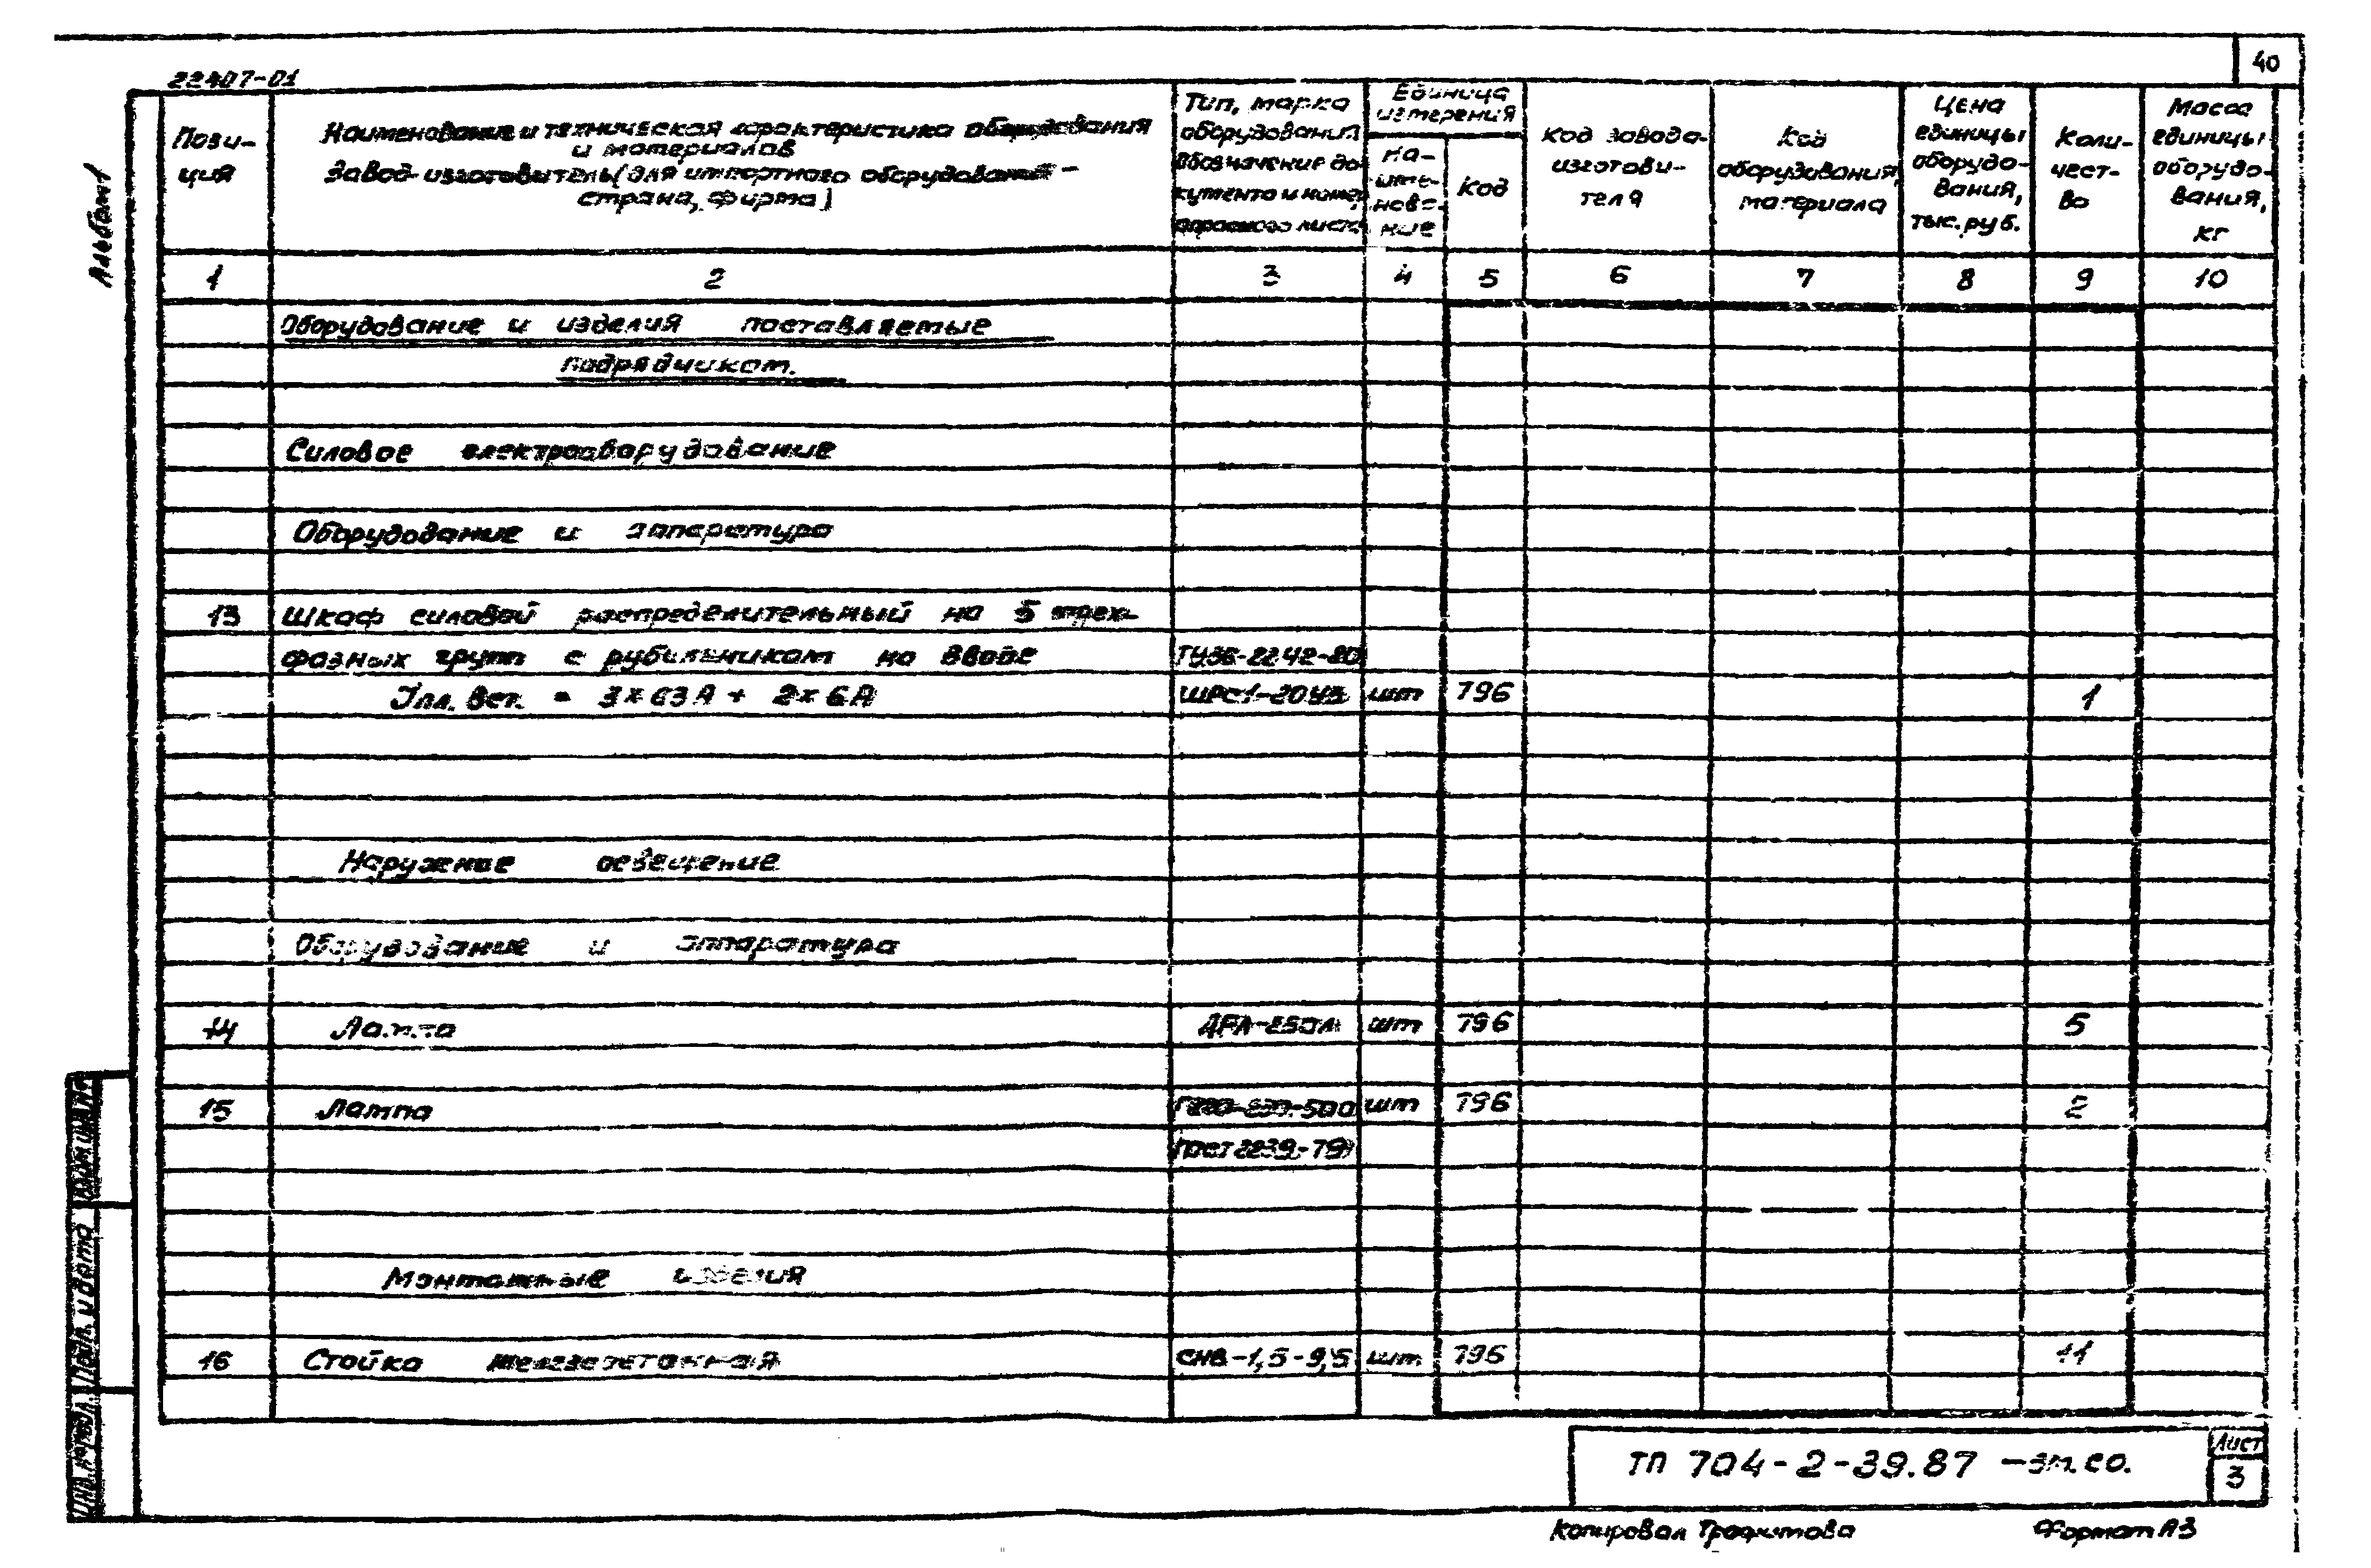 40
22407-01
Альбом 1
Пози-
ция
Наименование и техническая характеристика оборудования
и материалов
Завод-изготовитель (для импортного оборудования -
страна, фирма)
Тип, марка
оборудования
Обозначение до-
кумента и номер
опросного листа
Единица
измерения
На-
име-
нова-
ние
Код
Код завода-
изготови-
теля
Код
оборудования,
материала
Цена
единицы
оборудо-
вания,
тыс. руб.
Коли-
чест-
во
Масса
единицы
оборудо-
вания,
кг
1 2 3 4 5 6 7 8 9 10
Оборудование и изделия поставляемые
подрядчиком.
Силовое электрооборудование
Оборудование и аппаратура
13 Шкаф силовой распределительный на 5 трех-
фазных групп с рубильником на вводе ТУ36-2242-80
Iпл. вст. = 3×63А + 2×6А ШРС1-20У3 шт 796 1
Наружное освещение
Оборудование и аппаратура
14 Лампа ДРЛ-250 шт 796 5
15 Лампа шт 796 2
Гост 2239-79
Монтажные изделия
16 Стойка железобетонная СНВ-1,5-9,5 шт 796 11
ТП 704-2-39.87 -эм.со.
Лист
3
Копировал Трофимова Формат А3
Инв. № подл. Подп. и дата